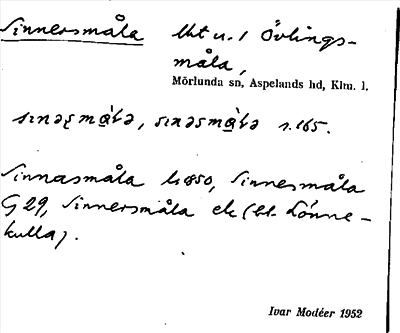 Sinnersmåla lht u. 1 Övlings-
måla,
Mörlunda sn, Aspelands hd, Klm. l.
s. 165.
Sinnasmåla 1850, Sinnesmåla
G 29, Sinnersmåla ek (bl. Lönne-
kulla).
Ivar Modéer 1952